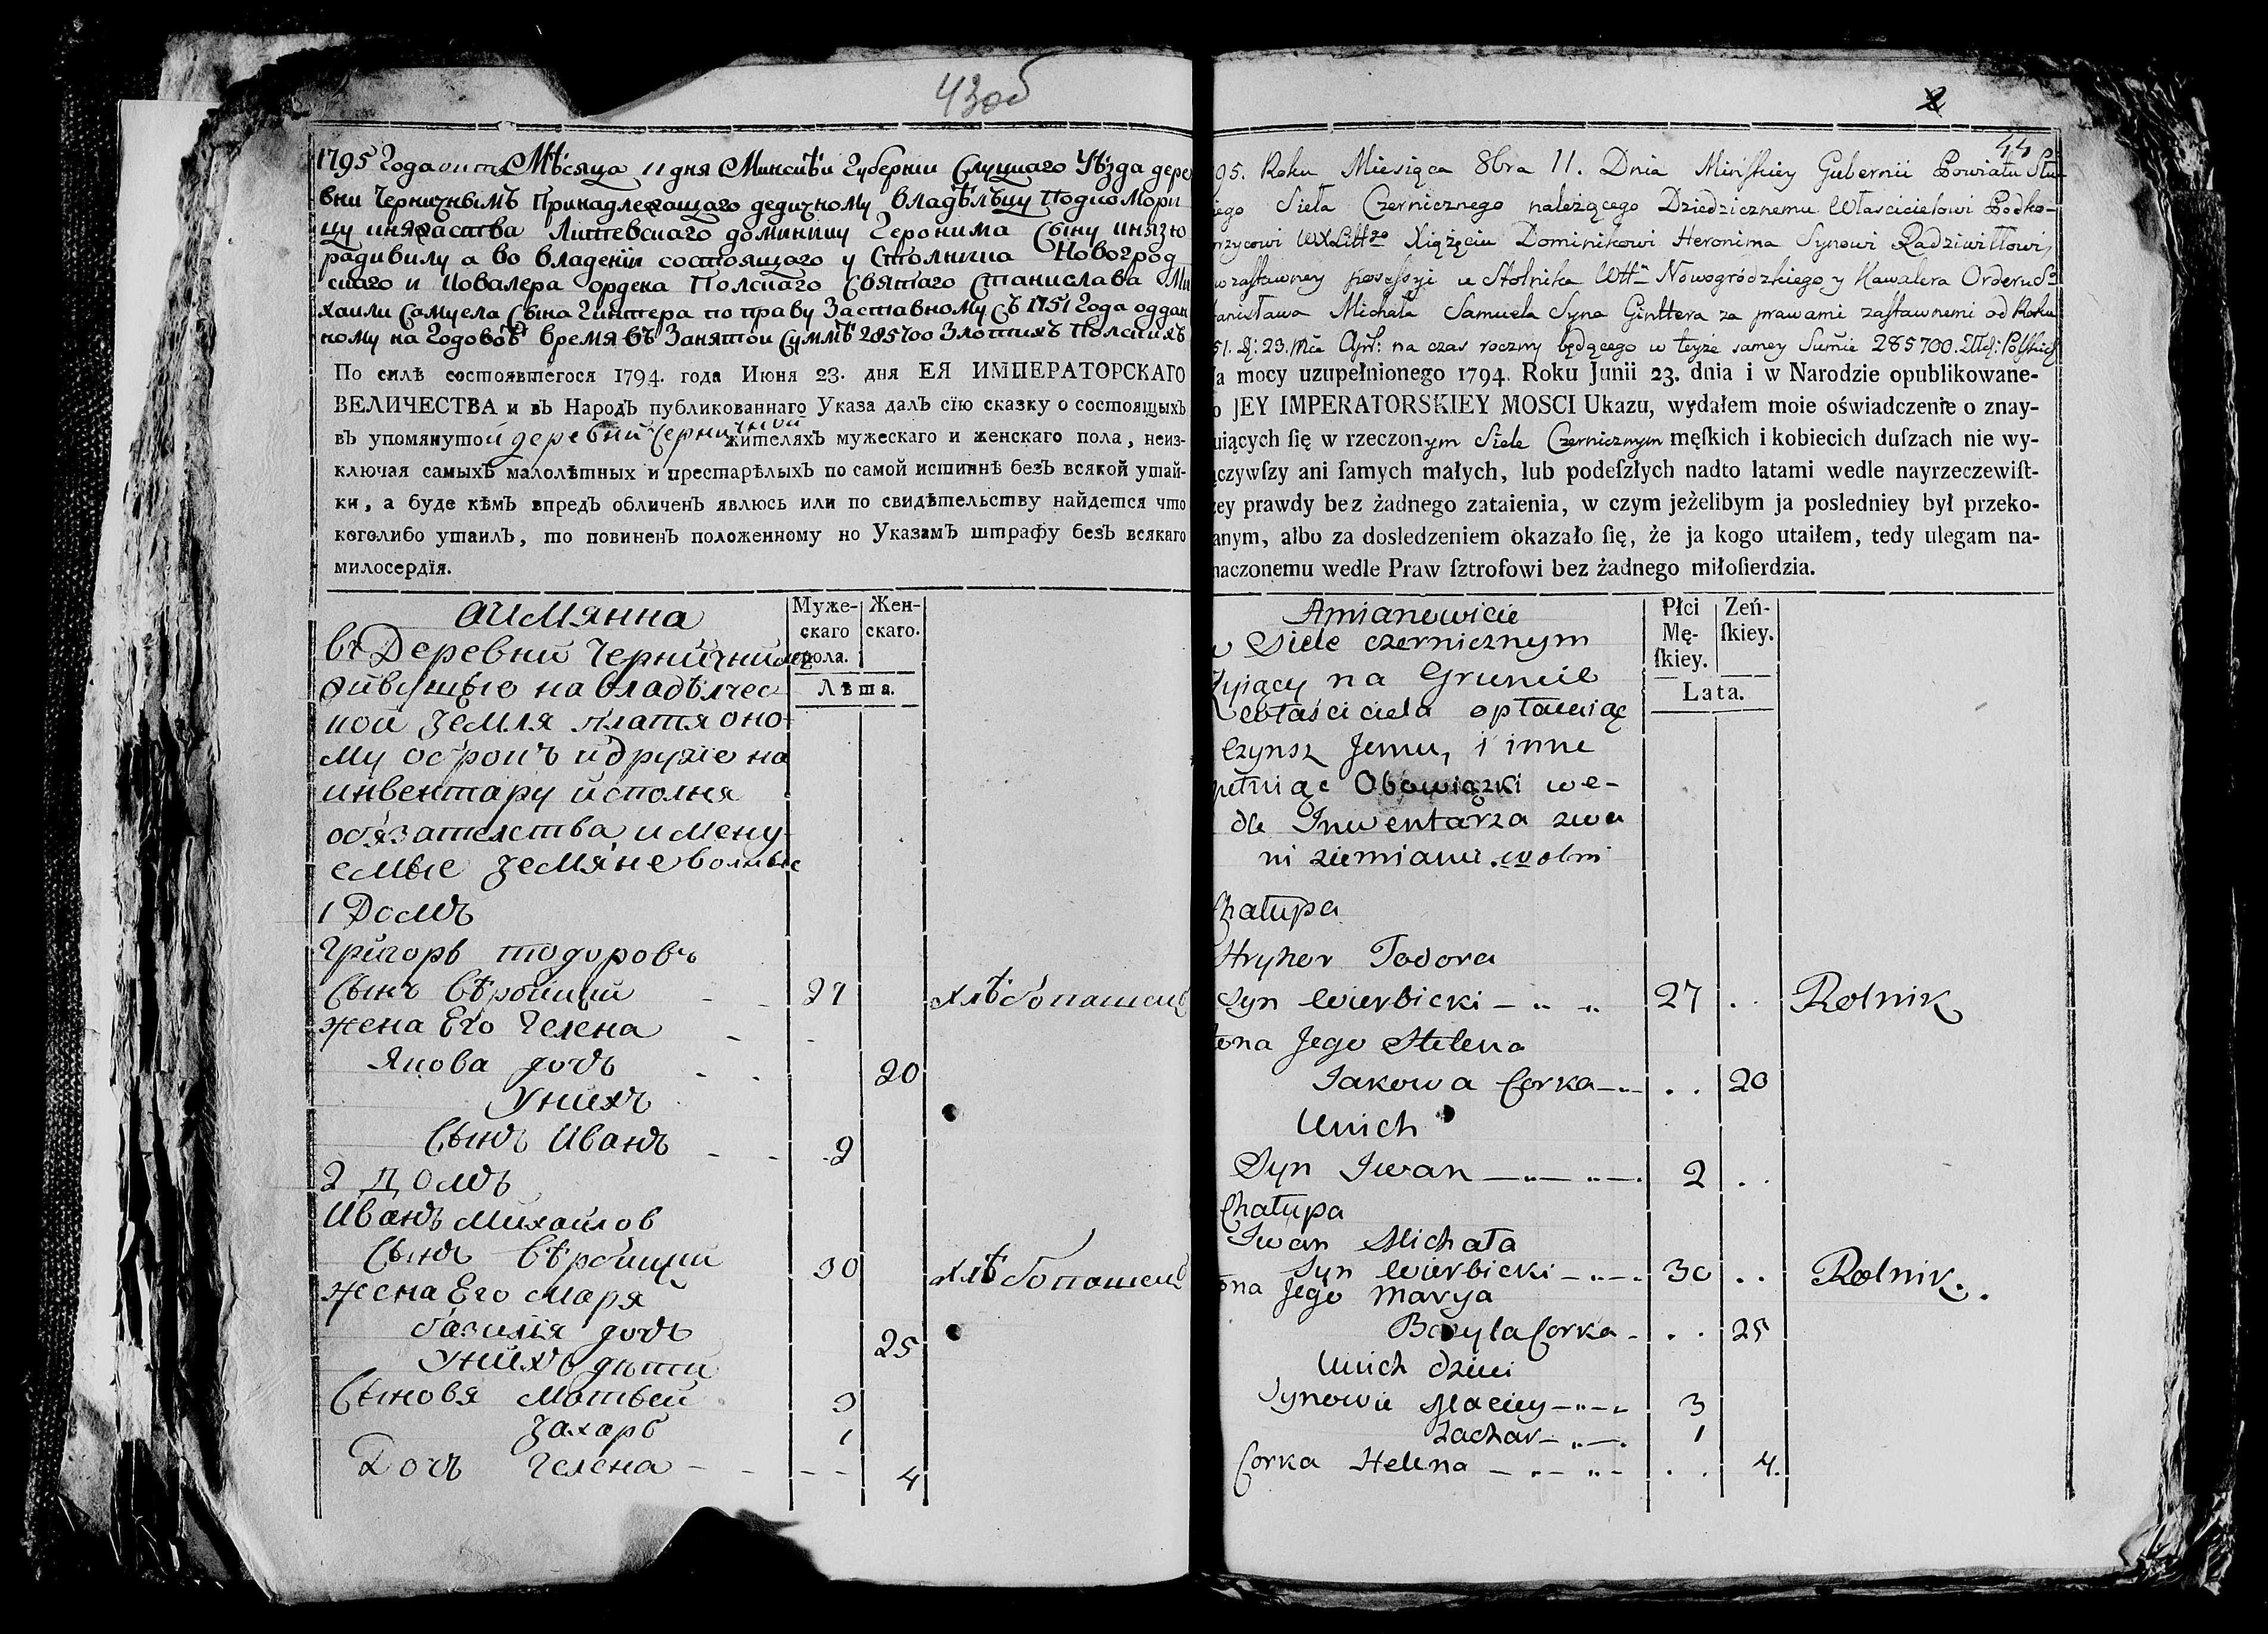 43об
1795 Года окт Мѣсяца 11 дня Минскѣй Губернiи Слуцкаго Уѣзда дере
вни Черничнымъ Принадлежащаго дедичному владѣлъцу Подкомори
цу княжаства Литевскаго доминику Геронима Сыну князю
радивилу а во владенiи состоящаго у Столника Новогрод
скаго и Ковалера ордена Полскаго Святаго Станислава Ми
хаили Самуела Сына Гинтера по праву Заставному съ 1751 Года оддан
ному на Годовоѣ время въ Занятой Суммѣ 285700 Злотихъ Полскихъ
По силѣ состоявшегося 1794. года Июня 23. дня ЕЯ ИМПЕРАТОРСКАГО
ВЕЛИЧЕСТВА и въ Народъ публикованнаго Указа далъ сїю сказку о состоящыхъ
въ упомянутой деревни Черничной жителяхъ мужескаго и женскаго пола, неиз-
ключая самыхъ малолѣтных и престарѣлыхъ по самой истиннѣ безъ всякой утай-
ки, а буде кѣмъ впредъ обличенъ явлюсь или по свидѣтельству найдется что
коголибо утаилъ, то повиненъ положенному но Указамъ штрафу безъ всякаго
милосердїя.
Муже-
скаго
пола.
Жен-
скаго.
Лѣта.
аимянна
въ Деревни Черничнимъ
живущые на владѣлчес
кой земля платя оно
му оброкъ и другie на
инвентару исполня
обязателства имену
емые земяне волные
1 Домъ
Григоръ тодоровъ
Сынъ вѣрбицки - - 27 хлѣбопашецъ
жена Его Гелена - -
Якова дочъ - - 20
Унихъ
Сынъ Иванъ - - 2
2 Домъ
Иванъ Михайлов
Сынъ вѣрбицки 30 хлѣбопашецъ
жена Его Маря
базилiя дочъ 25
Унихъ дѣти
Сыновя Матвей 3
Захаръ 1
Дочъ Гелена - - - - 4
2
44
95. Roku Miesiąca 8bra 11. Dnia Mińſkiey Gubernii Powiatu Słu-
iego Sieła Czernicznego należącego Dziedzicznemu Włascicielowi Podko-
rzycowi WXLitt20 Xiążęciu Dominikowi Heronima Synowi Radziwiłłowi,
w zaſtawney poſeſsyi u Stolnika Wttn Nowogródzkiego y Kawalera Orderu S.
tanisława Michała Samuela Syna Ginttera za prawami zaſtawnemi od Roku
51. D: 23. Mca Apr: na czas roczny będącego w teyże samey Summie 285700. Zł: Polſkich
a mocy uzupełnionego 1794. Roku Junii 23. dnia i w Narodzie opublikowane-
o JEY IMPERATORSKIEY MOSCI Ukazu, wydałem moie oświadczenie o znay-
uiących ſię w rzeczonym Siele Czernicznym męſkich i kobiecich duſzach nie wy-
ączywſzy ani ſamych małych, lub podeſzłych nadto latami wedle nayrzeczewiſt-
zey prawdy bez żadnego zataienia, w czym jeżelibym ja posledniey był przeko-
anym, albo za dosledzeniem okazało ſię, że ja kogo utaiłem, tedy ulegam na-
naczonemu wedle Praw ſztrofowi bez żadnego miłoſierdzia.
Płci
Mę-
ſkiey.
Zeń-
ſkiey.
Lata.
Amianowicie
w Siele czernicznym
żyiący na Gruncie
właściciela opłaciąc
Czynsz Jemu, i inne
pełniąc Obowiązki we-
dle Inwentarza zwa
ni ziemianie wolni
Chałupa
Hryhor Todora
Syn Wierbicki 27 . . Rolnik
żona Jego Helena
Jakowa Corka . . 20
Unich
Syn Iwan 2 . .
Chałupa
Iwan Michała
Syn Wierbicki 30 . . Rolnik.
żona Jego Marya
Bazyla Corka . . 25
Unich dzieci
Synowie Maciey 3
Zachar 1
Corka Helena . . 4.